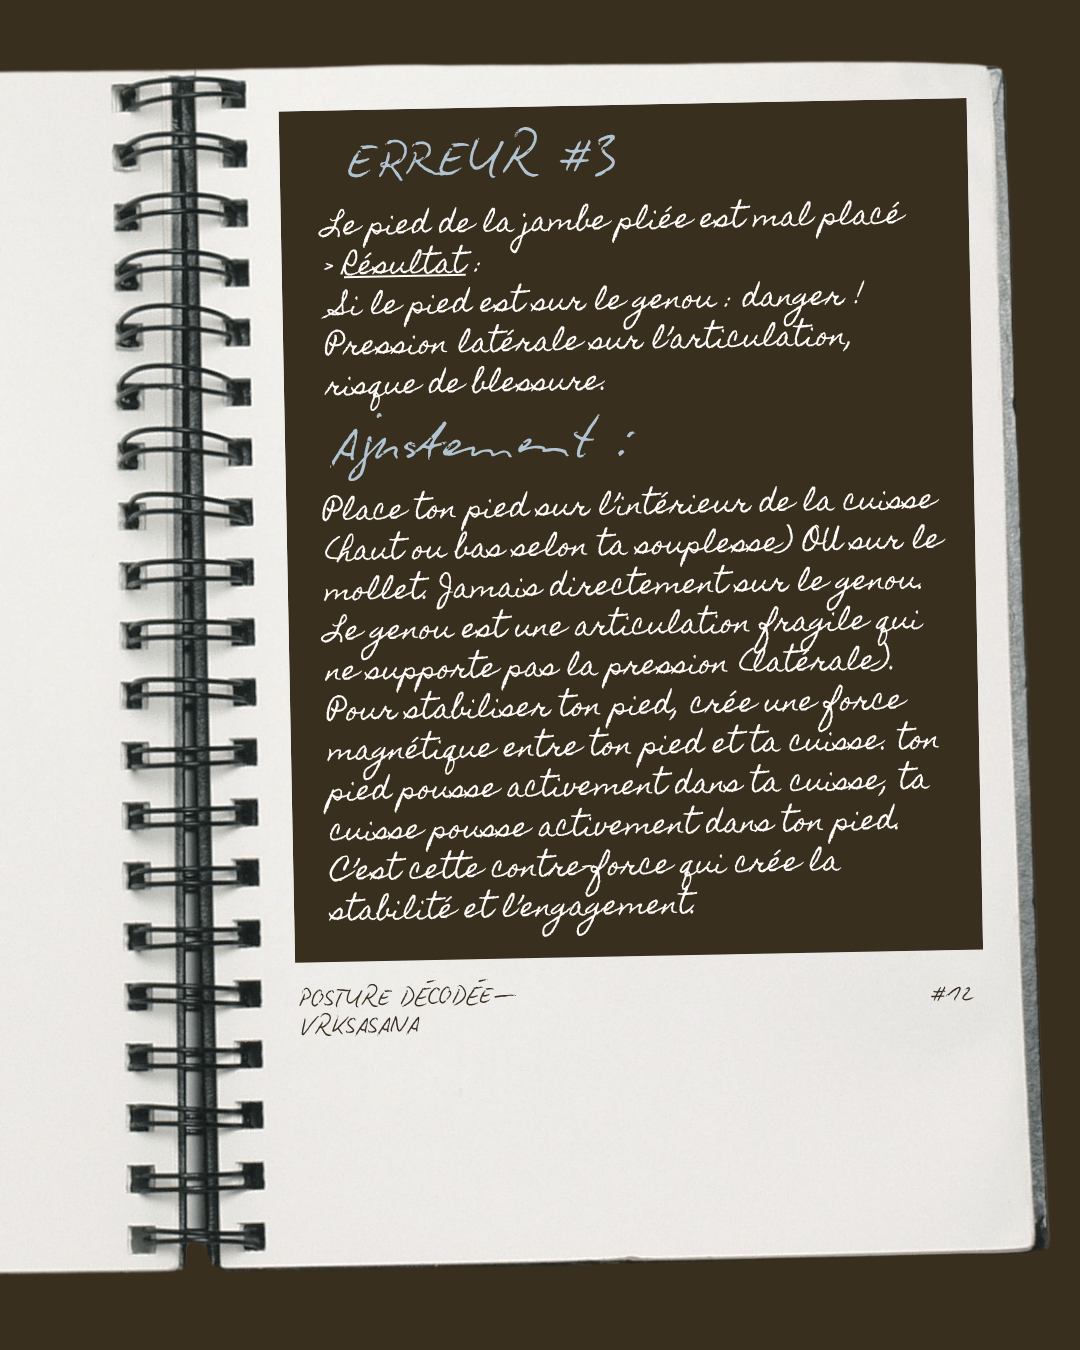 ERREUR #3
Le pied de la jambe pliée est mal placé
> Résultat :
Si le pied est sur le genou : danger !
Pression latérale sur l'articulation,
risque de blessure.
Ajustement :
Place ton pied sur l'intérieur de la cuisse
(haut ou bas selon ta souplesse) OU sur le
mollet. Jamais directement sur le genou.
Le genou est une articulation fragile qui
ne supporte pas la pression (latérale).
Pour stabiliser ton pied, crée une force
magnétique entre ton pied et ta cuisse. ton
pied pousse activement dans ta cuisse, ta
cuisse pousse activement dans ton pied.
C'est cette contre-force qui crée la
stabilité et l'engagement.
POSTURE DÉCODÉE—
VRKSASANA
#12